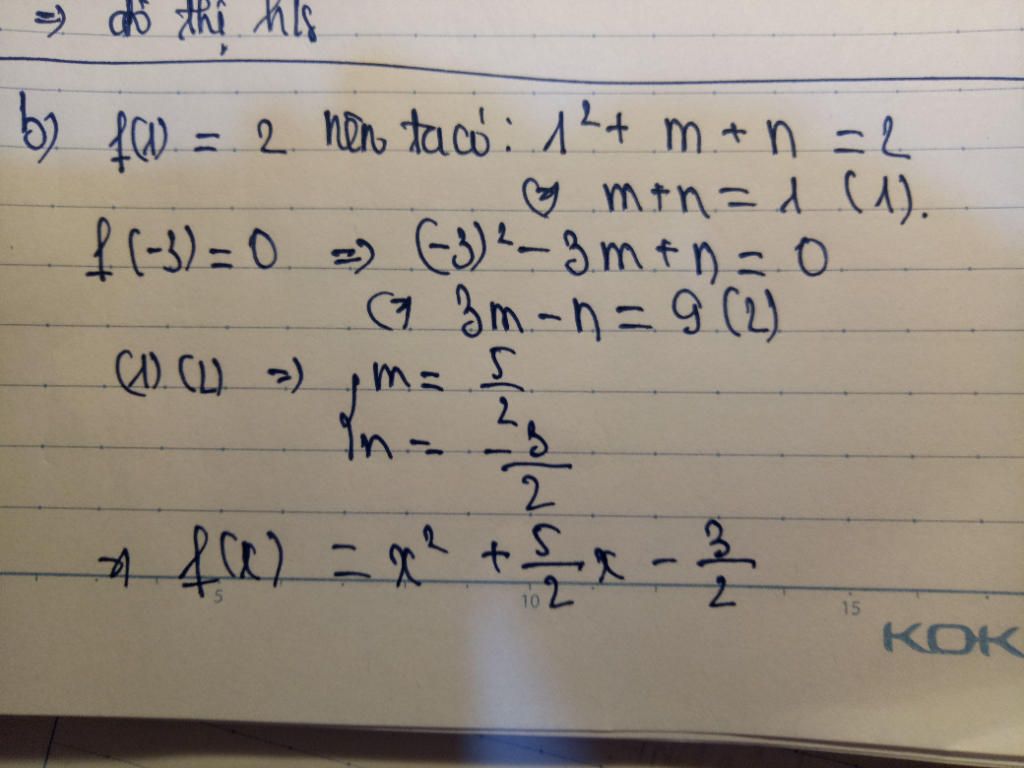 => đồ thị h/s
b) f(1) = 2 nên ta có: 1² + m + n = 2
<=> m+n = 1 (1).
f(-3) = 0 => (-3)² - 3m + n = 0
<=> 3m - n = 9 (2)
(1) (2) => { m = 5/2
n = -3/2
=> f(x) = x² + 5/2 x - 3/2
5 10 15
KOK